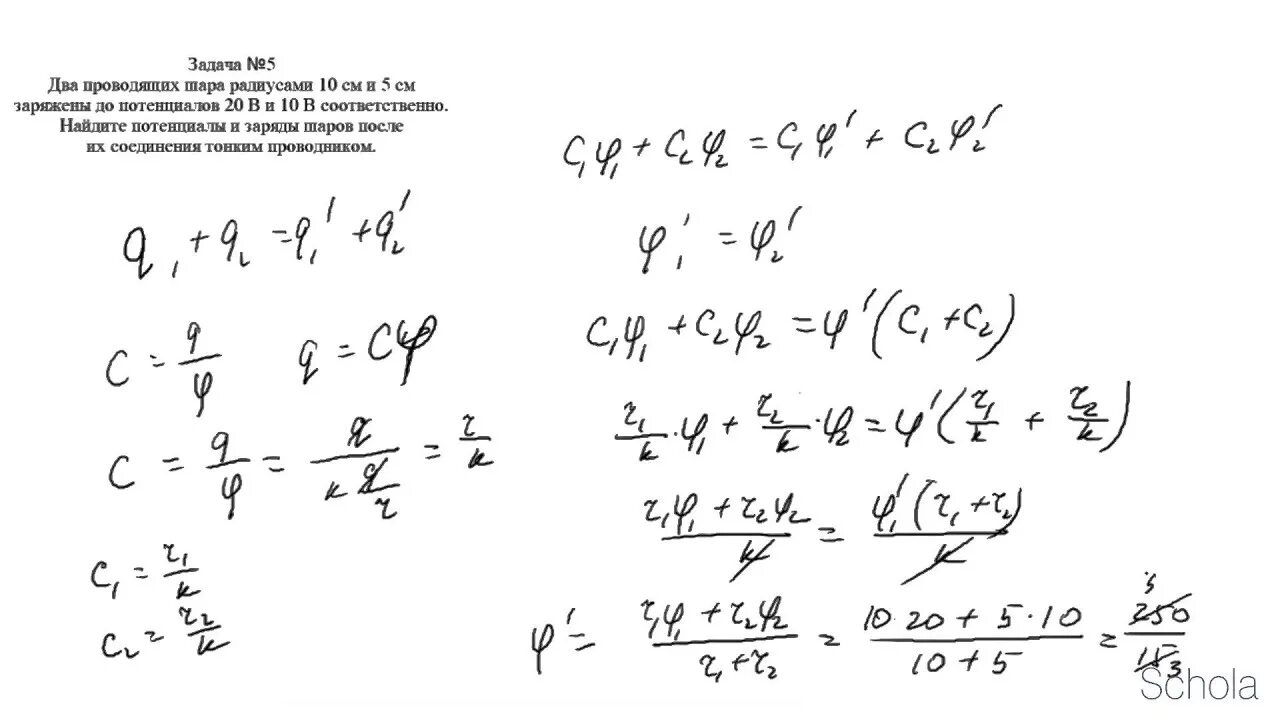 Задача №5
Два проводящих шара радиусами 10 см и 5 см
заряжены до потенциалов 20 В и 10 В соответственно.
Найдите потенциалы и заряды шаров после
их соединения тонким проводником.
q₁ + q₂ = q₁' + q₂'
C = q/φ    q = Cφ
C = q/φ = q/(k q/r) = r/k
C₁ = r₁/k
C₂ = r₂/k
C₁φ₁ + C₂φ₂ = C₁φ₁' + C₂φ₂'
φ₁' = φ₂'
C₁φ₁ + C₂φ₂ = φ'(C₁ + C₂)
r₁/k · φ₁ + r₂/k · φ₂ = φ'(r₁/k + r₂/k)
(r₁φ₁ + r₂φ₂)/k = φ'(r₁ + r₂)/k
φ' = (r₁φ₁ + r₂φ₂)/(r₁ + r₂) = (10·20 + 5·10)/(10 + 5) = 250/15 3
Schola